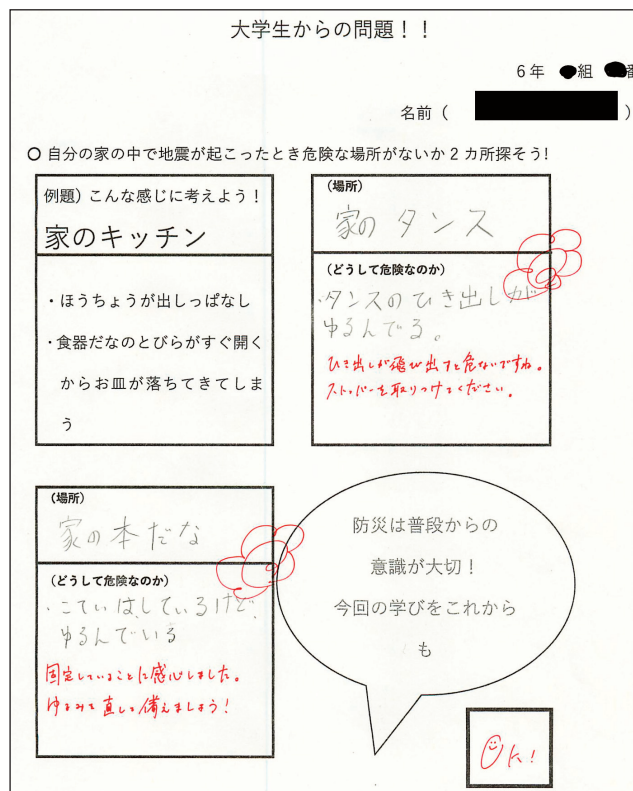 大学生からの問題！！
6年 組 番
名前 ( )
○ 自分の家の中で地震が起こったとき危険な場所がないか2カ所探そう!
例題) こんな感じに考えよう！
家のキッチン
・ほうちょうが出しっぱなし
・食器だなのとびらがすぐ開く
からお皿が落ちてきてしま
う
(場所)
家の タンス
(どうして危険なのか)
・タンスのひき出しが
ゆるんでる。
ひき出しが飛び出すと危ないですね。
ストッパーを取りつけてください。
(場所)
家の本だな
(どうして危険なのか)
・こていはしているけど、
ゆるんでいる
固定していることに感心しました。
ゆるみを直して備えましょう！
防災は普段からの
意識が大切！
今回の学びをこれから
も
OK!